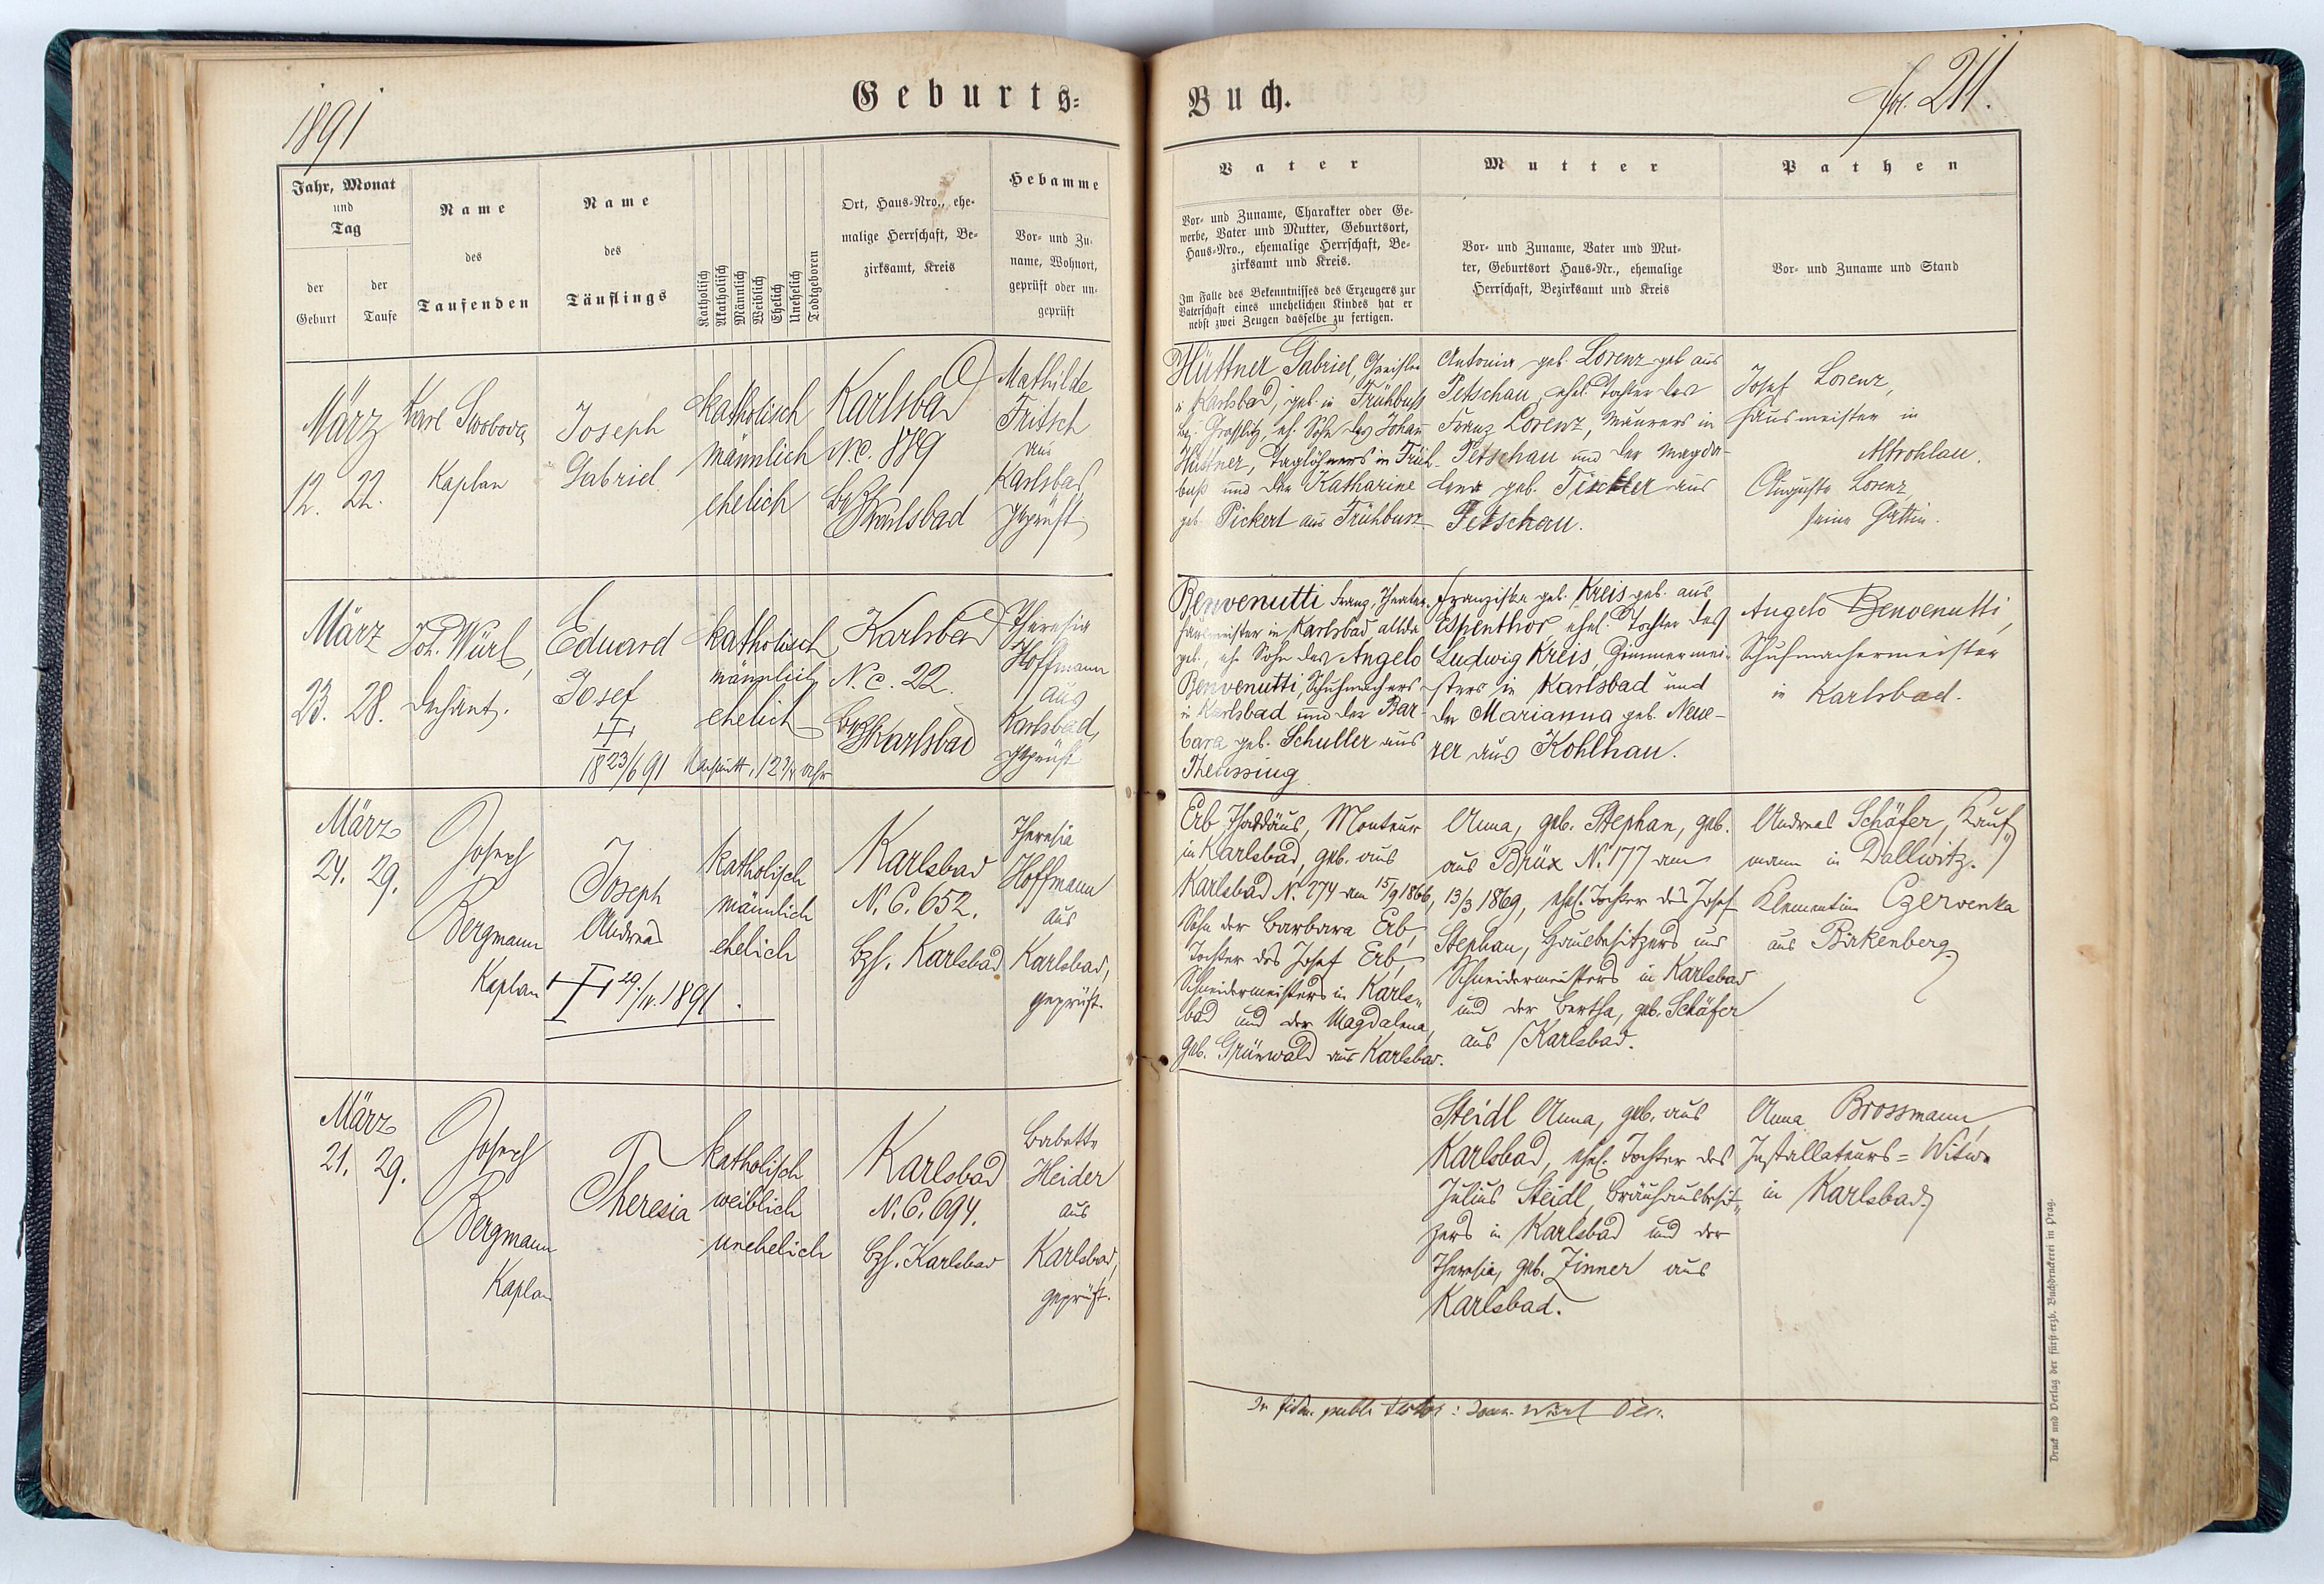 1891
Geburts-
Jahr, Monat
und
Tag
der
Geburt
der
Taufe
Name
des
Taufenden
Name
des
Täuflings
Katholisch
Akatholisch
Männlich
Weiblich
Ehelich
Unehelich
Todtgeboren
Ort, Haus-Nro., ehe-
malige Herrschaft, Be-
zirksamt, Kreis
Hebamme
Vor- und Zu-
name, Wohnort,
geprüft oder un-
geprüft
März
12. 22.
Karl Swoboda
Kaplan
Joseph
Gabriel
katholisch
männlich
ehelich
Karlsbad
N.c. 889
Karlsbad
Mathilde
Fritsch
aus
Karlsbad
geprüft
März
23. 28.
Joh. Würl,
Dechant.
Eduard
Josef
18 23/6 91
katholisch
männlich
ehelich
12 1/4 Uhr
Karlsbad
N.c. 22.
Karlsbad
Theresia
Hoffmann
aus
Karlsbad,
geprüft
März
24. 29.
Joseph
Bergmann
Kaplan
Joseph
Andreas
29./IV. 1891.
katholisch
männlich
ehelich
Karlsbad
N. C. 652.
Bzh. Karlsbad
Theresia
Hoffmann
aus
Karlsbad,
geprüft.
März
21. 29.
Joseph
Bergmann
Kaplan
Theresia
katholisch
weiblich
unehelich
Karlsbad
N. C. 694.
Bzh. Karlsbad
Babette
Heider
aus
Karlsbad,
geprüft.
Buch.
fol. 211.
Vater
Vor- und Zuname, Charakter oder Ge-
werbe, Vater und Mutter, Geburtsort,
Haus-Nro., ehemalige Herrschaft, Be-
zirksamt und Kreis.
Im Falle des Bekenntnisses des Erzeugers zur
Vaterschaft eines unehelichen Kindes hat er
nebst zwei Zeugen dasselbe zu fertigen.
Mutter
Vor- und Zuname, Vater und Mut-
ter, Geburtsort Haus-Nr., ehemalige
Herrschaft, Bezirksamt und Kreis
Pathen
Vor- und Zuname und Stand
Hüttner Gabriel, Greisler
in Karlsbad, geb. in Frühbuß
Bez. Graslitz, eh. Sohn des Johan
Hüttner, Taglöhners in Früh-
buß und der Katharine
geb. Pickert aus Frühbuss
Antonia geb. Lorenz geb. aus
Petschau, ehel. Tochter des
Franz Lorenz, Maurers in
Petschau und der Magda-
lena geb. Tischler aus
Petschau.
Josef Lorenz,
Hausmeister in
Altrohlau.
Auguste Lorenz,
seine Gattin.
Benvenutti Franz, Theater-
hausmeister in Karlsbad, allda
geb., eh. Sohn des Angelo
Benvenutti, Schuhmachers
in Karlsbad und der Bar-
bara geb. Schuller aus
Theussing
Franziska geb. Kreis geb. aus
Espenthor, ehel. Tochter des
Ludwig Kreis, Zimmermei-
sters in Karlsbad und
der Marianna geb. Neue-
rer aus Kohlhau.
Angelo Benvenutti,
Schuhmachermeister
in Karlsbad.
Erb Thaddäus, Monteur
in Karlsbad, geb. aus
Karlsbad N. 274 am 15/9 1866,
Sohn der Barbara Erb,
Tochter des Josef Erb,
Schneidermeisters in Karls-
bad und der Magdalena,
geb. Grünwald aus Karlsbad.
Anna, geb. Stephan, geb.
aus Brüx N. 177 am
13/3 1869, ehel. Tochter des Josef
Stephan, Hausbesitzers und
Schneidermeisters in Karlsbad
und der Bertha, geb. Schäfer
aus Karlsbad.
Andreas Schäfer, Kauf-
mann in Dallwitz.
Klementine Czerwenka
aus Birkenberg
Steidl Anna, geb. aus
Karlsbad, ehel. Tochter des
Julius Steidl, Bräuhausbesit-
zers in Karlsbad und der
Theresia, geb. Zinner aus
Karlsbad.
Anna Brossmann,
Installateurs-Witwe
in Karlsbad
In fidem publ.
Druck und Verlag der fürst-erzb. Buchdruckerei in Prag.